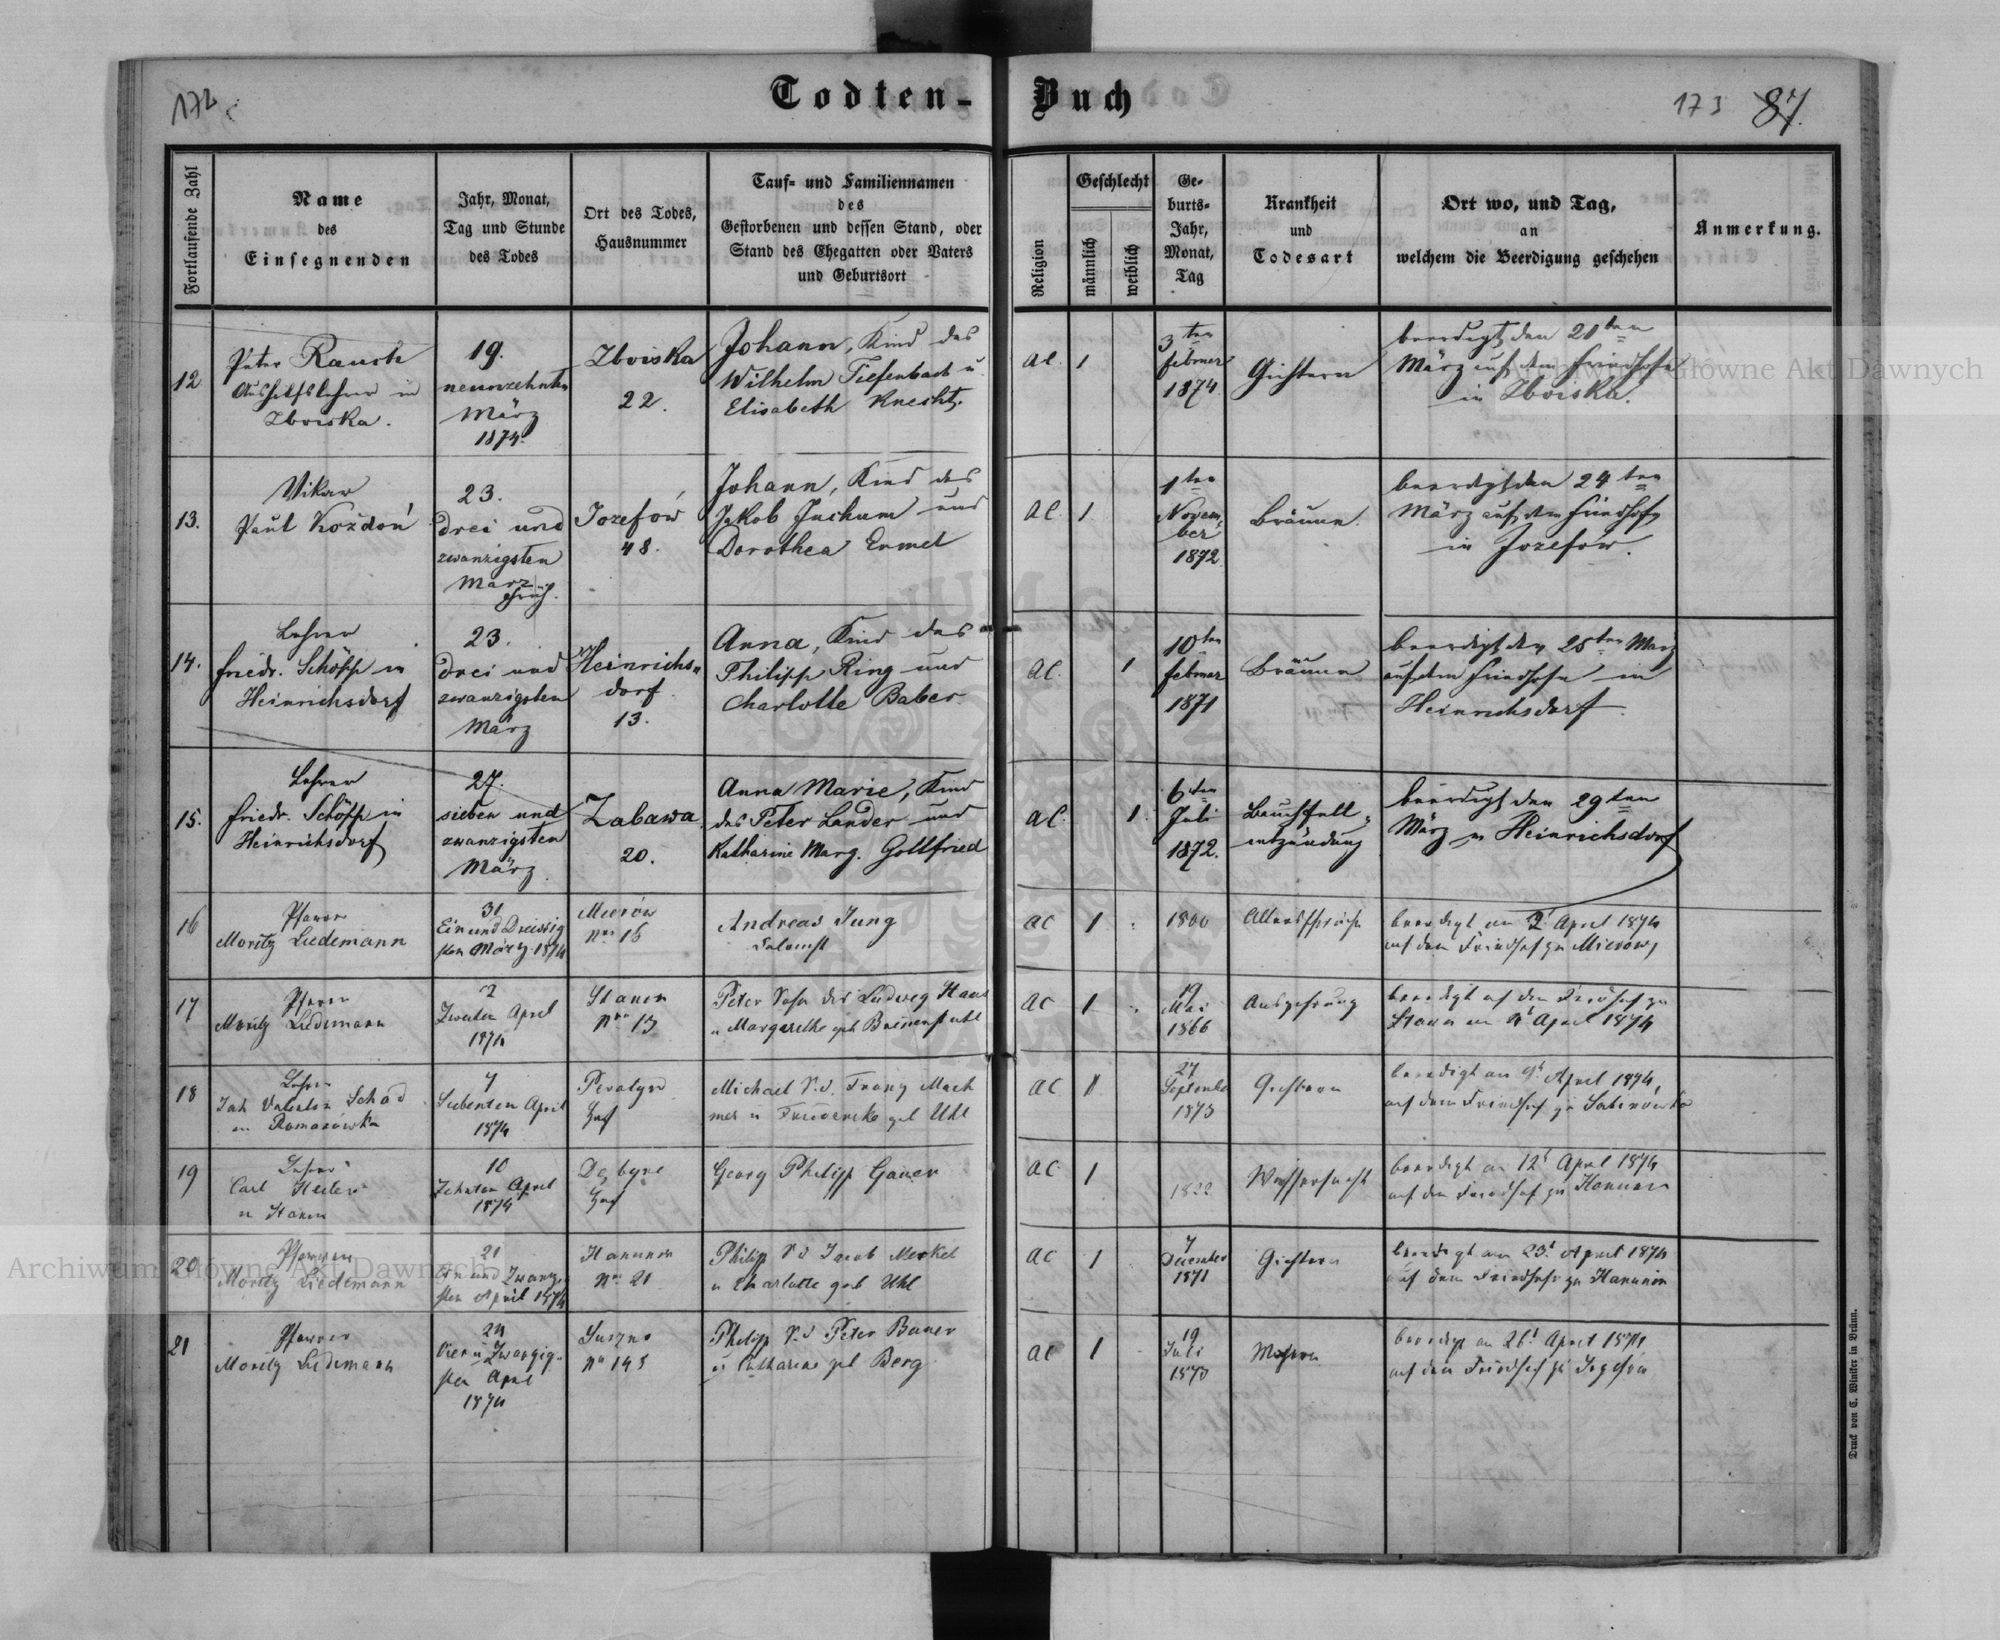 172
Todten-
Buch
173 87.
Fortlaufende Zahl
Name
des
Einsegnenden
Jahr, Monat,
Tag und Stunde
des Todes
Ort des Todes,
Hausnummer
Tauf- und Familiennamen
des
Gestorbenen und dessen Stand, oder
Stand des Ehegatten oder Vaters
und Geburtsort
Religion
Geschlecht
männlich
weiblich
Ge-
burts-
Jahr,
Monat,
Tag
Krankheit
und
Todesart
Ort wo, und Tag,
an
welchem die Beerdigung geschehen
Anmerkung.
12
Peter Rausch
Aushilfslehrer in
Zboiska.
19.
neunzehnten
März
1874.
Zboiska
22.
Johann, Kind des
Wilhelm Tiefenbach u.
Elisabeth Knecht.
AC. 1
3ten
Februar
1874
Gichtern
beerdigt den 21ten
März auf dem Friedhofe
in Zboiska.
13.
Vikar
Paul Kozdoń
23.
drei und
zwanzigsten
März
früh.
Jozefów
48.
Johann, Kind des
Jakob Juchum und
Dorothea Ermel
AC. 1
1ten
Novem-
ber
1872
Bräune.
beerdigt den 24ten
März auf dem Friedhofe
in Jozefów.
14.
Lehrer
Friedr. Schöpp in
Heinrichsdorf
23.
drei und
zwanzigsten
März
Heinrichs-
dorf.
13.
Anna, Kind des
Philipp Ring und
Charlotte Baber
AC. 1
10ten
Februar
1871
Bräune
beerdigt den 25ten März
auf dem Friedhofe in
Heinrichsdorf.
15.
Lehrer
Friedr. Schöpp in
Heinrichsdorf
27.
sieben und
zwanzigsten
März.
Zabawa
20.
Anna Marie, Kind
des Peter Lander und
Katharine Marg. Gottfried
AC. 1.
6ten
Juli
1872.
Bauchfell-
entzündung
beerdigt den 29ten
März in Heinrichsdorf
16
Pfarrer
Moritz Liedemann
31
Ein und Dreissig
sten März 1874
Mierów
Nro 15
Andreas Jung
AC 1
1800
Altersschwäche
beerdigt am 2t April 1874
auf dem Friedhof zu Mierow,
17
Pfarrer
Moritz Liedemann
2
Zweiten April
1874
Stanin
Nro 13
Peter Sohn des Ludwig
u Margarethe geb
AC 1
19
Mai
1866
Auszehrung
beerdigt auf dem Friedhof zu
Stanin am April 1874
18
Lehrer
Valentin Schad
in Romanówka
7
Siebenten April
1874
Michael S. d. Franz
u Friedericke geb Uhl
AC 1
27
September
1873
Gichtern
beerdigt am 9t April 1874,
auf dem Friedhof zu
19
Lehrer
Carl
in Stanin
10
Zehnten April
1874
Georg Philipp Gauer
AC. 1
1822
Wassersucht
beerdigt am 12t April 1874
auf dem Friedhof zu Hanunin
20
Pfarrer
Moritz Liedemann
21
Ein und Zwanzig
sten April 1874
Hanunin
Nro 21
Philipp S d Jacob Merkel
u Charlotte geb Uhl
AC 1
7
December
1871
Gichtern
beerdigt am 23t April 1874
auf dem Friedhofe zu Hanunin
21
Pfarrer
Moritz Liedemann
24
Vier u Zwanzig-
sten April
1874
Suszno
No 145
Philipp S. d Peter Bauer
u Catharine geb Berg
AC 1
19
Juli
1873
Masern
beerdigt am 26t April 1874
auf dem Friedhof zu Jozefów
Druck von C. Winiker in Brünn.
Archiwum Główne Akt Dawnych
Archiwum Główne Akt Dawnych